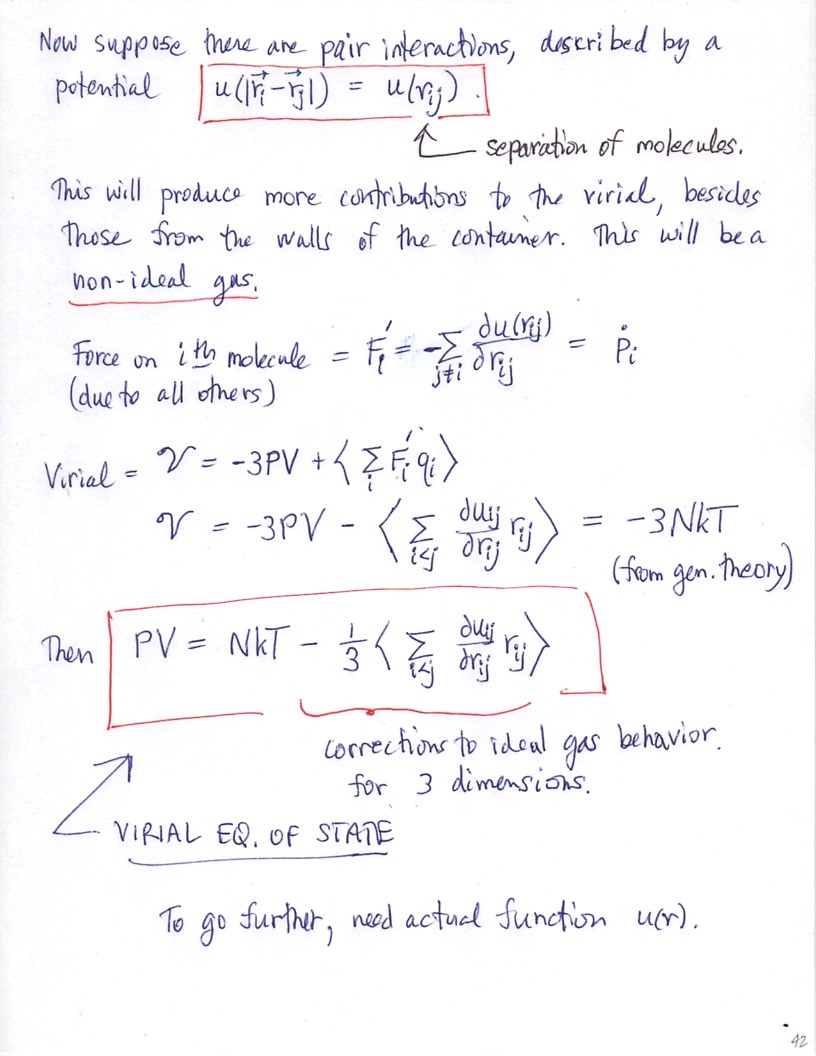 Now suppose there are pair interactions, described by a
potential u(|r⃗i−r⃗j|) = u(rij).
separation of molecules.
This will produce more contributions to the virial, besides
those from the walls of the container. This will be a
non-ideal gas.
Force on ith molecule = Fi′ = −∑j≠i ∂u(rij)/∂rij = ṗi
(due to all others)
Virial = 𝒱 = −3PV + ⟨∑i Fi′ qi⟩
𝒱 = −3PV − ⟨∑i<j ∂uij/∂rij rij⟩ = −3NkT
(from gen. theory)
Then PV = NkT − 1/3 ⟨∑i<j ∂uij/∂rij rij⟩
corrections to ideal gas behavior.
for 3 dimensions.
VIRIAL EQ. OF STATE
To go further, need actual function u(r).
42